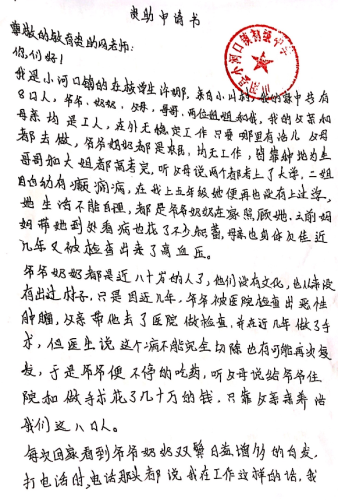 资助申请书
尊敬的教育资助网老师:
你们好!
我是小河口镇的在校学生许娜,来自小山村,我的家中共有
8口人,爷爷、奶奶、父母、哥哥、两位姐姐和我,我的父亲和
母亲均是工人,在外无稳定工作只要哪里有活儿父母
都去做,爷爷奶奶都是农民,均无工作,皆靠种地为生
哥哥和大姐都高考完,听父母说两个都考上了大学,二姐
自幼有癫痫病,在我上五年级她便再也没有上过学,
她生活不能自理,都是爷爷奶奶在家照顾她.之前妈
妈带她到处看病也花了不少积蓄,母亲也身体欠佳近
几年又被检查出来了高血压。
爷爷奶奶都是近八十岁的人了,他们没有文化,也从来没
有出过村子,只是因近几年,爷爷被医院检查出恶性
肿瘤,父亲带他去了医院做检查,并在近几年做了手
术,但医生说这个病不能完全切除也有可能再次复
发,于是爷爷便不停的吃药,听父母说给爷爷住
院和做手术花了几十万的钱,只靠父亲来养活
我们这八口人。
每次回家看到爷爷奶奶双鬓日益增多的白发,
打电话时,电话那头都说我在工作这样的话,我
小河口镇初级中学